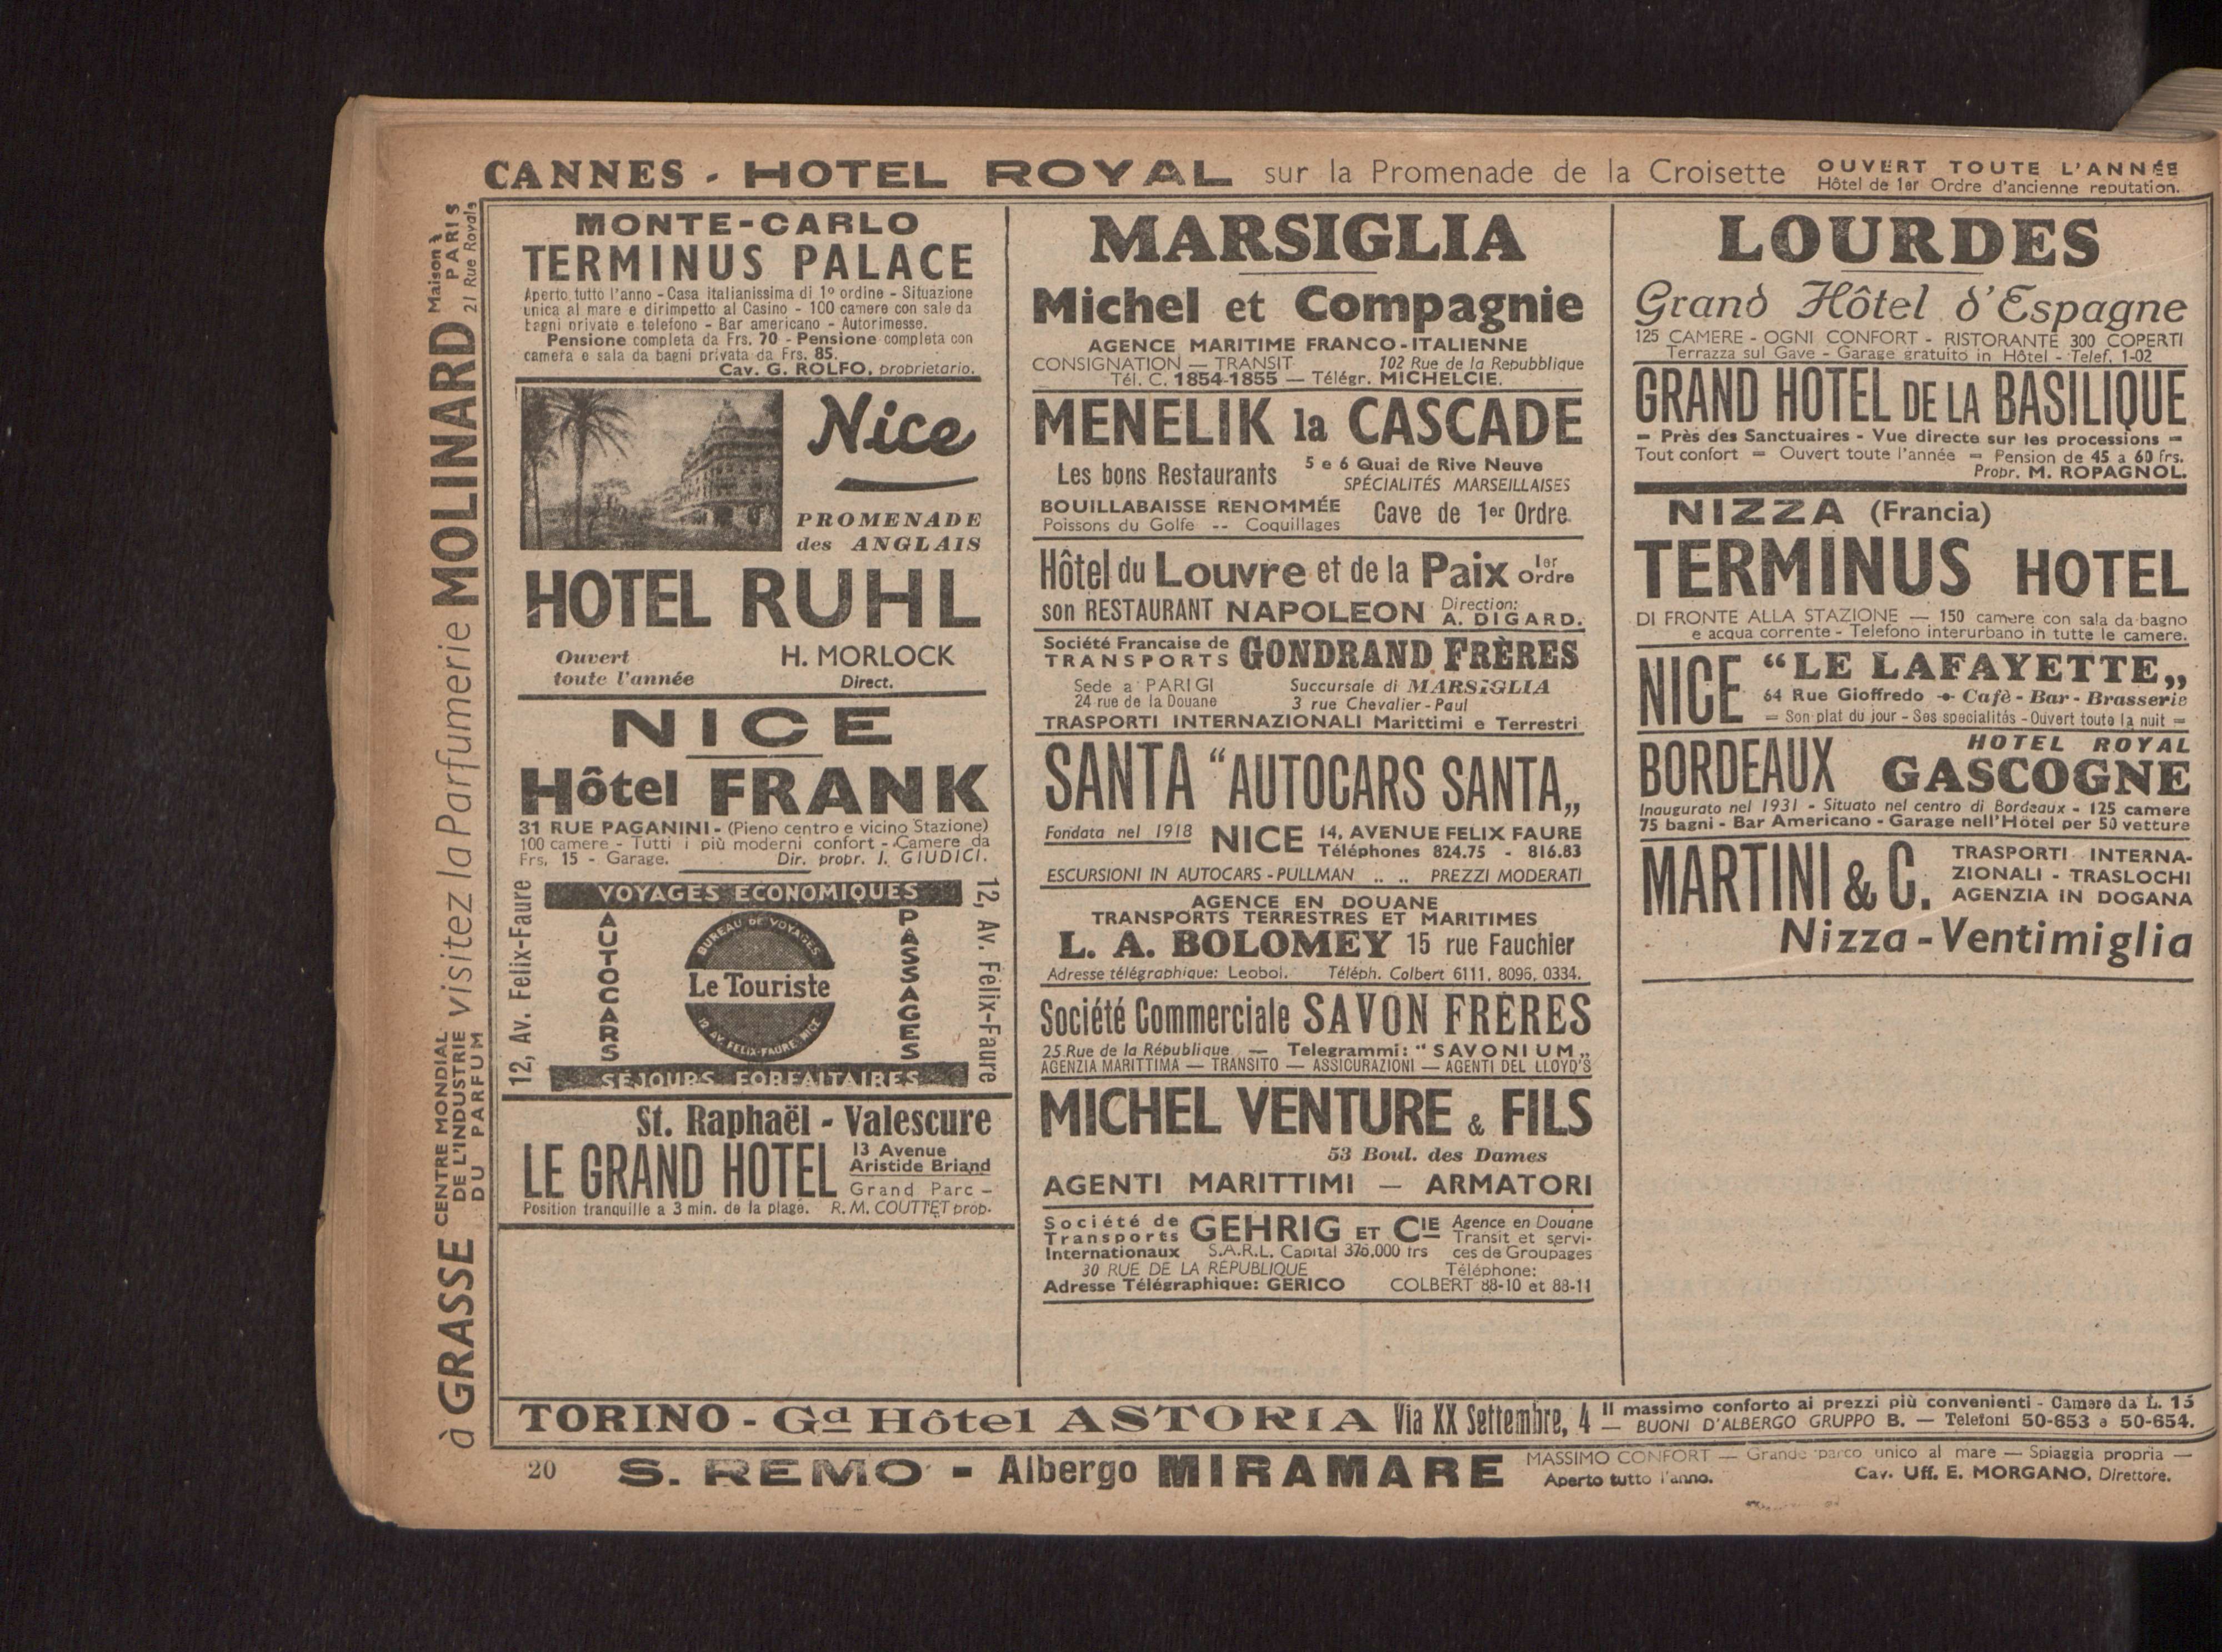 CANNES - HOTEL ROYAL sur la Promenade de la Croisette OUVERT TOUTE L'ANNÉE
Hôtel de 1er Ordre d'ancienne reputation.
à GRASSE CENTRE MONDIAL DE L'INDUSTRIE DU PARFUM visitez la Parfumerie MOLINARD Maison à PARIS 21 Rue Royale
MONTE-CARLO
TERMINUS PALACE
Aperto tutto l'anno - Casa italianissima di 1º ordine - Situazione
unica al mare e dirimpetto al Casino - 100 camere con sale da
bagni private e telefono - Bar americano - Autorimesse.
Pensione completa da Frs. 70 - Pensione completa con
camera e sala da bagni privata da Frs. 85.
Cav. G. ROLFO, proprietario.
Nice
PROMENADE
des ANGLAIS
HOTEL RUHL
Ouvert
toute l'année
H. MORLOCK
Direct.
NICE
Hôtel FRANK
31 RUE PAGANINI - (Pieno centro e vicino Stazione)
100 camere - Tutti i più moderni confort - Camere da
Frs. 15 - Garage. Dir. propr. I. GIUDICI.
12, Av. Felix-Faure
VOYAGES ECONOMIQUES
AUTOCARS
BUREAU DE VOYAGES
Le Touriste
12 AV. FELIX-FAURE NICE
PASSAGES
12, Av. Félix-Faure
SÉJOURS FORFAITAIRES
St. Raphaël - Valescure
LE GRAND HOTEL 13 Avenue
Aristide Briand
Grand Parc -
Position tranquille a 3 min. de la plage. R. M. COUTTET prop.
MARSIGLIA
Michel et Compagnie
AGENCE MARITIME FRANCO-ITALIENNE
CONSIGNATION — TRANSIT 102 Rue de la Republique
Tél. C. 1854-1855 — Télégr. MICHELCIE.
MENELIK la CASCADE
Les bons Restaurants 5 e 6 Quai de Rive Neuve
SPÉCIALITÉS MARSEILLAISES
BOUILLABAISSE RENOMMÉE
Poissons du Golfe -- Coquillages Cave de 1er Ordre.
Hôtel du Louvre et de la Paix 1er Ordre
son RESTAURANT NAPOLEON Direction:
A. DIGARD.
Société Francaise de
TRANSPORTS GONDRAND FRÈRES
Sede a PARIGI Succursale di MARSIGLIA
24 rue de la Douane 3 rue Chevalier-Paul
TRASPORTI INTERNAZIONALI Marittimi e Terrestri
SANTA "AUTOCARS SANTA„
Fondata nel 1918 NICE 14, AVENUE FELIX FAURE
Téléphones 824.75 - 816.83
ESCURSIONI IN AUTOCARS - PULLMAN .. .. PREZZI MODERATI
AGENCE EN DOUANE
TRANSPORTS TERRESTRES ET MARITIMES
L. A. BOLOMEY 15 rue Fauchier
Adresse télégraphique: Leobol. Téléph. Colbert 6111, 8096, 0334.
Société Commerciale SAVON FRÈRES
25 Rue de la République — Telegrammi: "SAVONIUM„
AGENZIA MARITTIMA — TRANSITO — ASSICURAZIONI — AGENTI DEL LLOYD'S
MICHEL VENTURE & FILS
53 Boul. des Dames
AGENTI MARITTIMI — ARMATORI
Société de
Transports
Internationaux
GEHRIG ET CIE
S.A.R.L. Capital 375.000 frs
Agence en Douane
Transit et servi-
ces de Groupages
30 RUE DE LA REPUBLIQUE Téléphone:
Adresse Télégraphique: GERICO COLBERT 88-10 et 88-11
LOURDES
Grand Hôtel d'Espagne
125 CAMERE - OGNI CONFORT - RISTORANTE 300 COPERTI
Terrazza sul Gave - Garage gratuito in Hôtel - Telef. 1-02
GRAND HOTEL DE LA BASILIQUE
= Près des Sanctuaires - Vue directe sur les processions =
Tout confort = Ouvert toute l'année = Pension de 45 a 60 frs.
Propr. M. ROPAGNOL.
NIZZA (Francia)
TERMINUS HOTEL
DI FRONTE ALLA STAZIONE — 150 camere con sala da bagno
e acqua corrente - Telefono interurbano in tutte le camere.
NICE "LE LAFAYETTE„
64 Rue Gioffredo - Cafè - Bar - Brasserie
= Son plat du jour - Ses specialités - Ouvert toute la nuit =
BORDEAUX HOTEL ROYAL
GASCOGNE
Inaugurato nel 1931 - Situato nel centro di Bordeaux - 125 camere
75 bagni - Bar Americano - Garage nell'Hôtel per 50 vetture
MARTINI & C. TRASPORTI INTERNA-
ZIONALI - TRASLOCHI
AGENZIA IN DOGANA
Nizza - Ventimiglia
TORINO - Gd Hôtel ASTORIA Via XX Settembre, 4 Il massimo conforto ai prezzi più convenienti - Camere da L. 15
— BUONI D'ALBERGO GRUPPO B. — Telefoni 50-653 e 50-654.
20 S. REMO - Albergo MIRAMARE MASSIMO CONFORT — Grande parco unico al mare — Spiaggia propria —
Aperto tutto l'anno. Cav. Uff. E. MORGANO, Direttore.